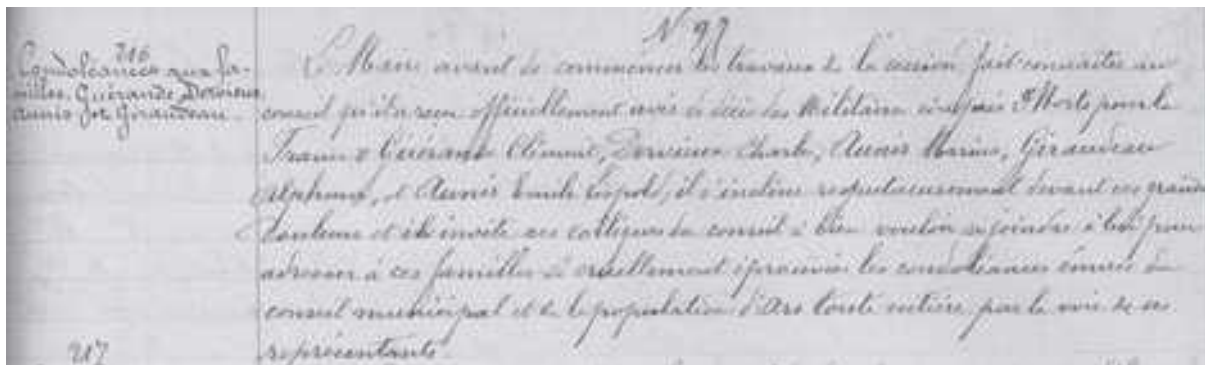 N° 97
216
Condoléances aux fa-
milles Guérande Dervieux
Aunis Jot Giraudeau.
Le Maire avant de commencer les travaux de la session fait connaitre au
conseil qu'il a reçu officiellement avis de décès des Militaires "Morts pour la
France" Guérand Clément, Dervieux Charles, Aunis Marius, Giraudeau
Alphonse, et Aunis Emile Léopold, il s'incline respectueusement devant ces grandes
douleurs et il invite ses collègues du conseil à bien vouloir se joindre à lui pour
adresser à ces familles si cruellement éprouvées les condoléances émues du
conseil municipal et de la population d'Ars toute entière, par la voix de ses
représentants.
217